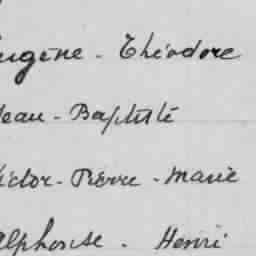 Eugène - Théodore
Jean - Baptiste
Victor - Pierre - Marie
Alphonse - Henri